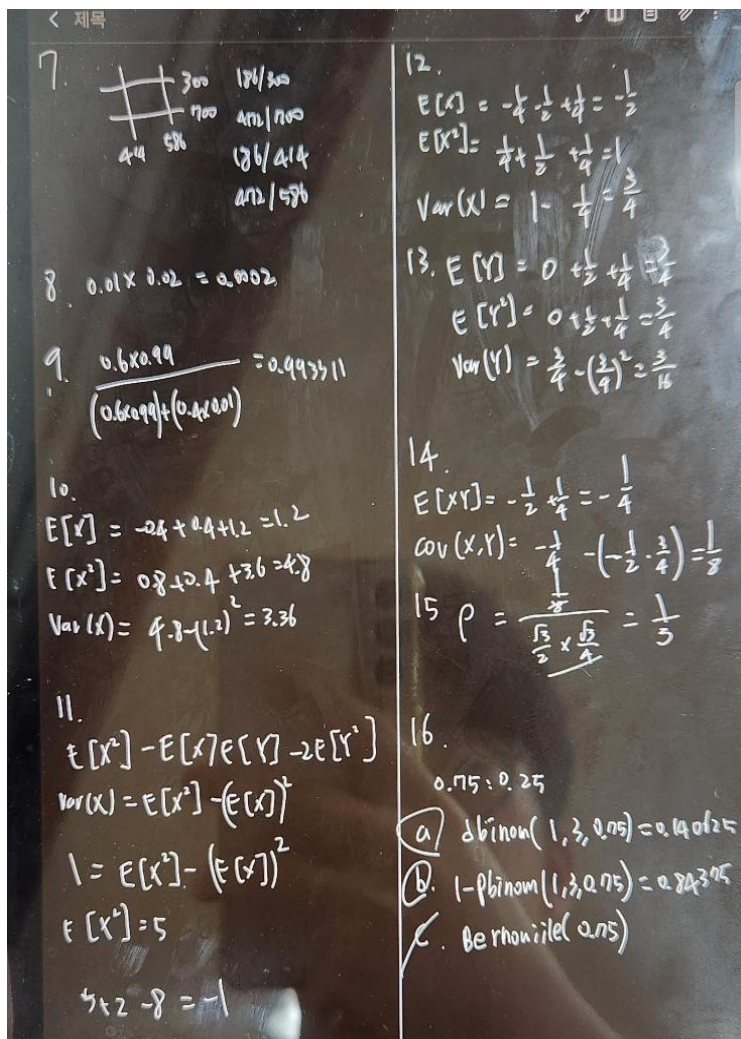 < 제목
7.
300 186/300
700 472/700
414 586 186/414
472/586
8. 0.01 x 0.02 = 0.0002
9. 0.6x0.99 / (0.6x0.99)+(0.4x0.01) = 0.993311
10.
E[X] = -0.4 + 0.4 + 1.2 = 1.2
E[X²] = 0.8 + 0.4 + 3.6 = 4.8
Var(X) = 4.8-(1.2)² = 3.36
11.
E[X²] - E[X]E[Y] - 2E[Y²]
Var(X) = E[X²] - (E[X])²
1 = E[X²] - (E[X])²
E[X²] = 5
5+2-8 = -1
12.
E[X] = -1/4 - 1/2 + 1/4 = -1/2
E[X²] = 1/4 + 1/2 + 1/4 = 1
Var(X) = 1 - 1/4 = 3/4
13. E[Y] = 0 + 1/2 + 1/4 = 3/4
E[Y²] = 0 + 1/2 + 1/4 = 3/4
Var(Y) = 3/4 - (3/4)² = 3/16
14.
E[XY] = -1/2 + 1/4 = -1/4
cov(X,Y) = -1/4 - (-1/2 · 3/4) = 1/8
15 ρ = 1/8 / (√3/2 x √3/4) = 1/3
16.
0.75 : 0.25
a) dbinom(1,3,0.75) = 0.140625
b. 1-Pbinom(1,3,0.75) = 0.84375
c. Bernouiile(0.75)